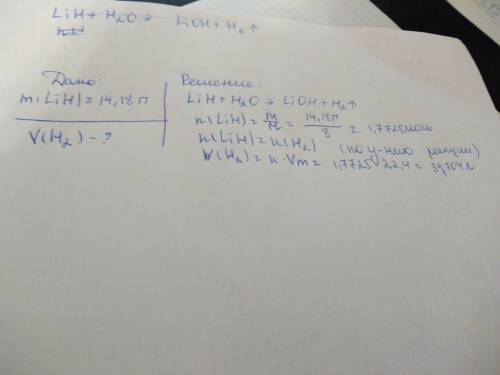 LiH + H₂O → LiOH + H₂↑
Дано:
m(LiH) = 14,18г
V(H₂) - ?
Решение:
LiH + H₂O → LiOH + H₂↑
n(LiH) = m/M = 14,18г/8 = 1,7725моль
n(LiH) = n(H₂) (по ур-нию реакции)
V(H₂) = n · Vm = 1,7725 · 22,4 = 39,704л